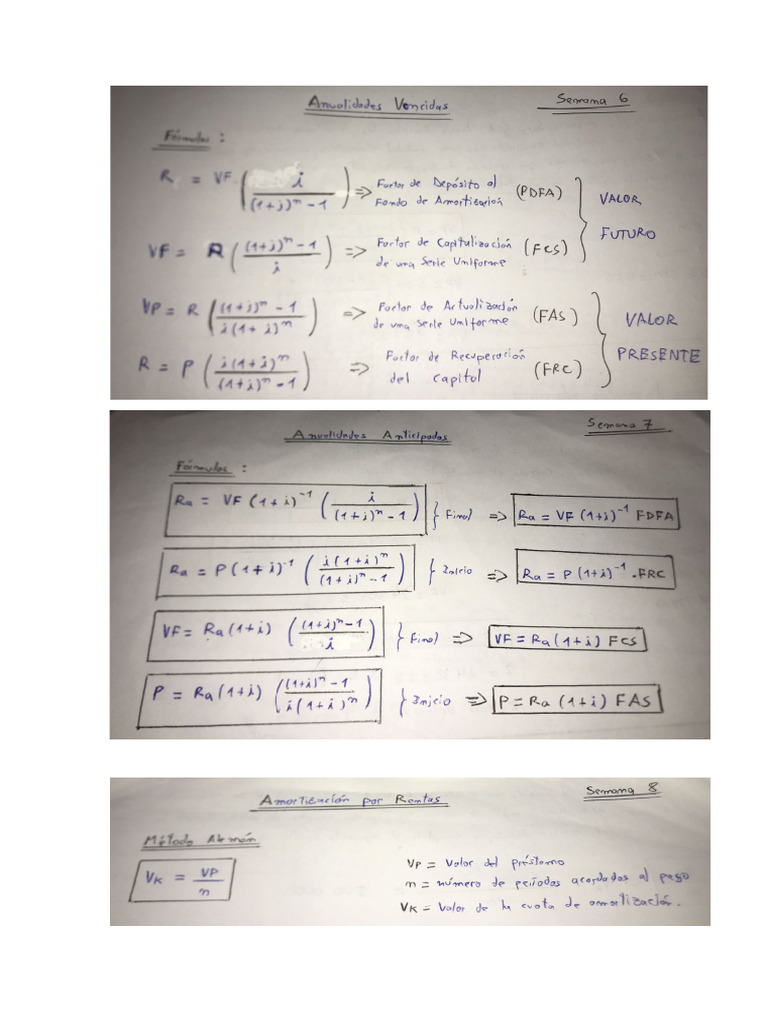 Anualidades Vencidas    Semana 6
Fórmulas :
R = VF ( i / (1+i)^n - 1 ) => Factor de Depósito al Fondo de Amortización (PDFA)
VF = R ( (1+i)^n - 1 / i ) => Factor de Capitalización de una Serie Uniforme (FCS)
VALOR FUTURO
VP = R ( (1+i)^n - 1 / i(1+i)^n ) => Factor de Actualización de una Serie Uniforme (FAS)
R = P ( i(1+i)^n / (1+i)^n - 1 ) => Factor de Recuperación del Capital (FRC)
VALOR PRESENTE
Anualidades Anticipadas    Semana 7
Fórmulas :
Ra = VF (1+i)^-1 ( i / (1+i)^n - 1 ) } Final => Ra = VF (1+i)^-1 FDFA
Ra = P (1+i)^-1 ( i(1+i)^n / (1+i)^n - 1 ) } Inicio => Ra = P (1+i)^-1 . FRC
VF = Ra (1+i) ( (1+i)^n - 1 / i ) } Final => VF = Ra (1+i) FCS
P = Ra (1+i) ( (1+i)^n - 1 / i(1+i)^n ) } Inicio => P = Ra (1+i) FAS
Amortización por Rentas    Semana 8
Método Alemán
VK = VP / n
VP = Valor del préstamo
n = número de períodos acordados al pago
VK = Valor de la cuota de amortización.